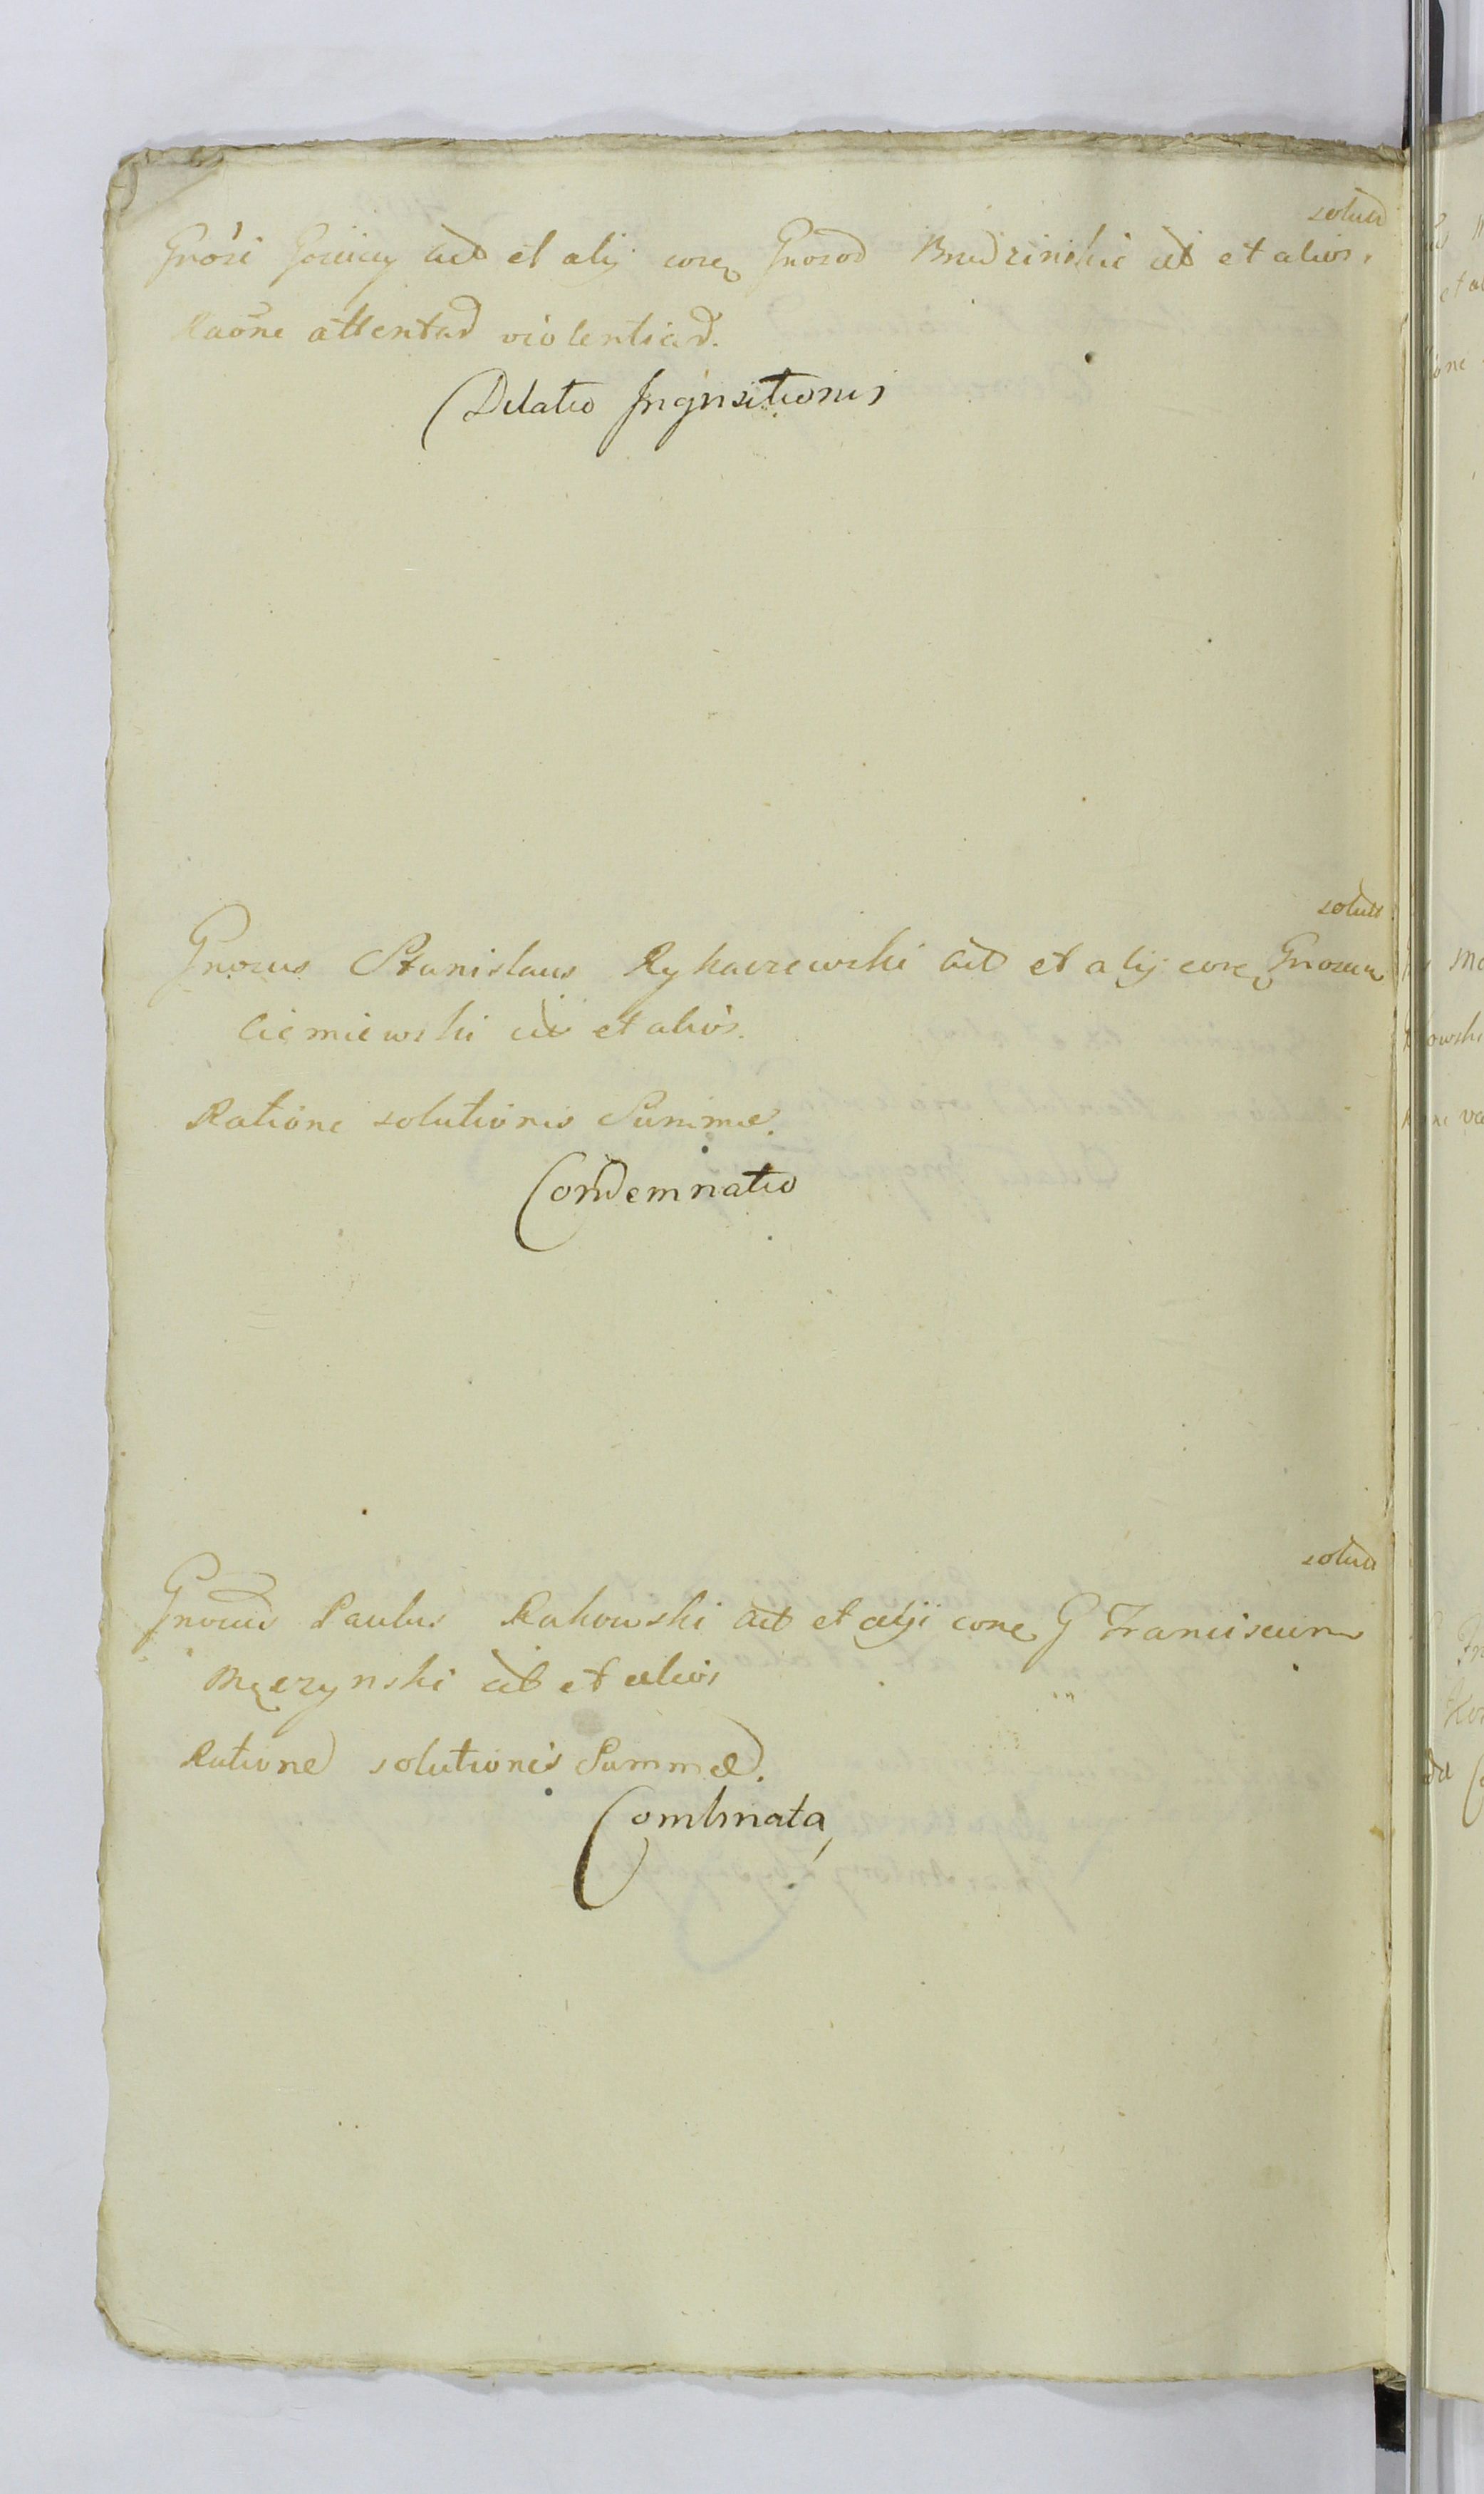 solut
Gnosi act et alij con Gnosos Budzinskie cit et alios.
Raone attentad violentiad.
Dilatio Inquisitionis
solut
Gnosus Stanislaus Rykaczewski act et alij con Gnosum
Ciemiewski cit et alios.
Ratione solutionis Summæ.
Condemnatio
solut
Gnosus Paulus Rakowski act et alji con G Franciscum
Męczynski cit et alios
Ratione solutionis Summæ.
Combinata